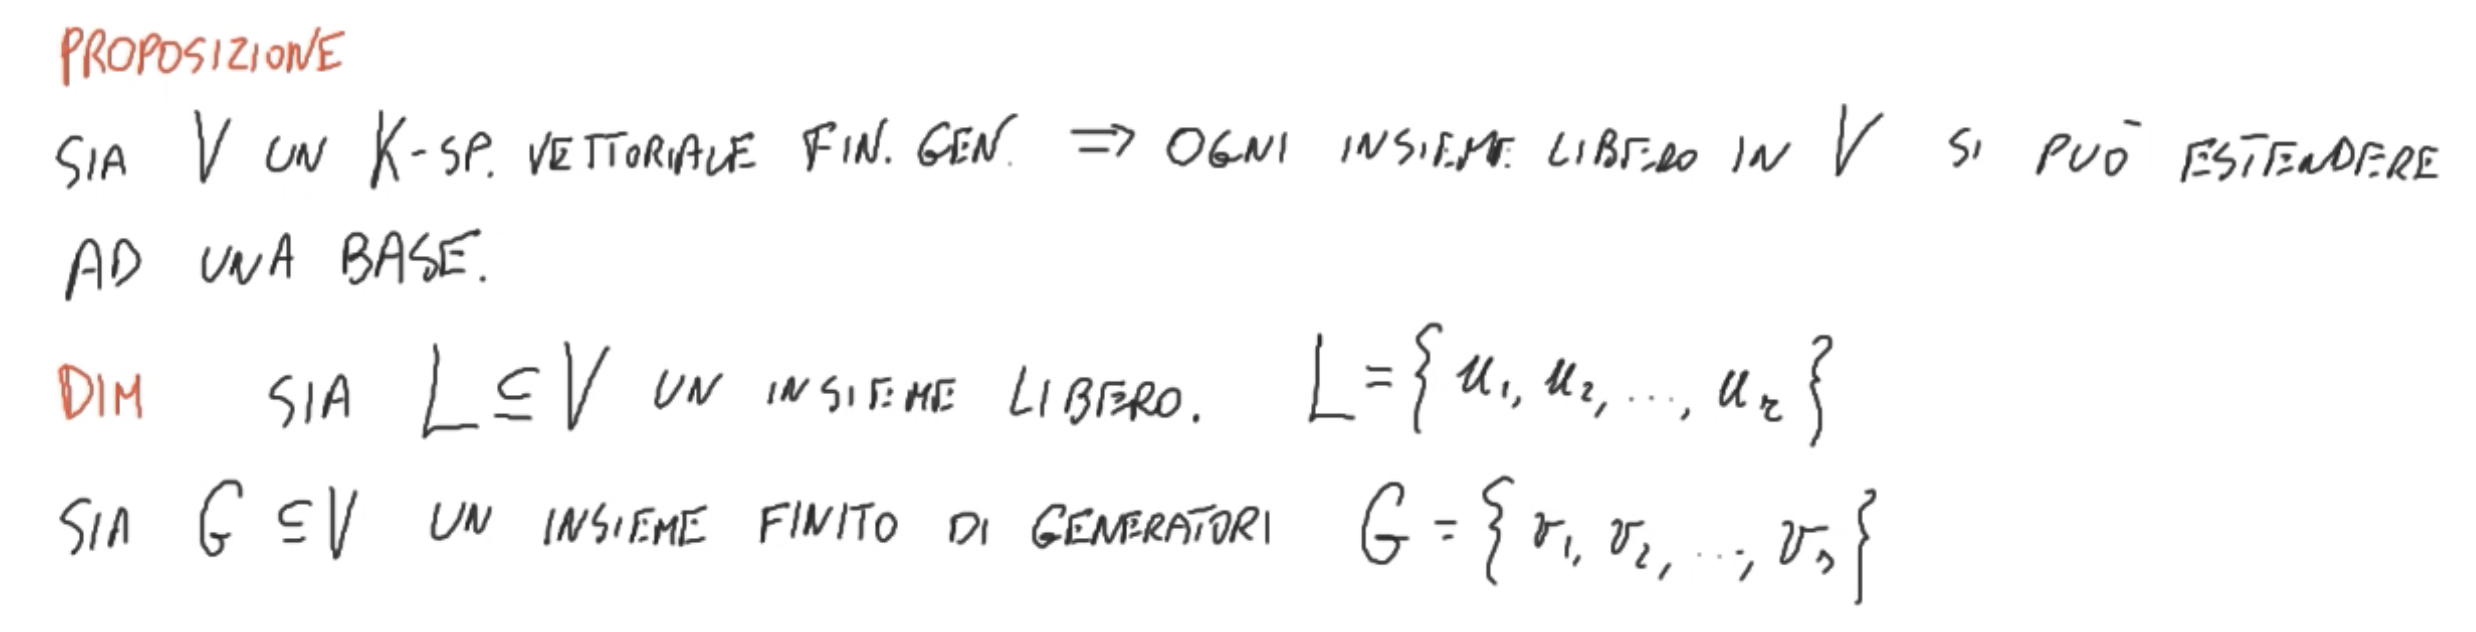 PROPOSIZIONE
SIA V UN K-SP. VETTORIALE FIN. GEN. ⇒ OGNI INSIEME LIBERO IN V SI PUÒ ESTENDERE
AD UNA BASE.
DIM SIA L ⊆ V UN INSIEME LIBERO. L = { u₁, u₂, ..., uᵣ }
SIA G ⊆ V UN INSIEME FINITO DI GENERATORI G = { v₁, v₂, ..., vₛ }